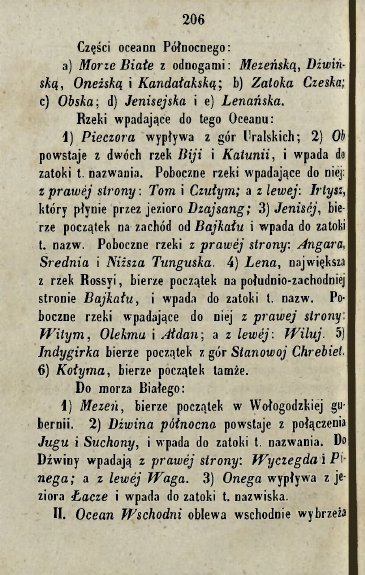 206
Części oceanu Północnego:
a) Morze Białe z odnogami: Mezeńską, Dźwiń-
ską, Oneżską i Kandałakską; b) Zatoka Czeska;
c) Obska; d) Jenisejska i e) Lenańska.
Rzeki wpadające do tego Oceanu:
1) Pieczora wypływa z gór Uralskich; 2) Ob
powstaje z dwóch rzek Biji i Katunii, i wpada do
zatoki t. nazwania. Poboczne rzeki wpadające do niej:
z prawéj strony: Tom i Czułym; a z lewej: Irtysz,
który płynie przez jezioro Dzajsang; 3) Jeniséj, bie-
rze początek na zachód od Bajkału i wpada do zatoki
t. nazw. Poboczne rzeki z prawéj strony: Angara,
Srednia i Niższa Tunguska. 4) Lena, największa
z rzek Rossyi, bierze początek na południo-zachodniej
stronie Bajkału, i wpada do zatoki t. nazw. Po-
boczne rzeki wpadające do niej z prawej strony:
Witym, Olekma i Ałdan; a z lewéj: Wiluj. 5)
Indygirka bierze początek z gór Stanowoj Chrebiet.
6) Kołyma, bierze początek tamże.
Do morza Białego:
1) Mezeń, bierze początek w Wołogodzkiej gu-
bernii. 2) Dźwina północna powstaje z połączenia
Jugu i Suchony, i wpada do zatoki t. nazwania. Do
Dźwiny wpadają z prawéj strony: Wyczegda i Pi-
nega; a z lewéj Waga. 3) Onega wypływa z je-
ziora Łacze i wpada do zatoki t. nazwiska.
II. Ocean Wschodni oblewa wschodnie wybrzeża